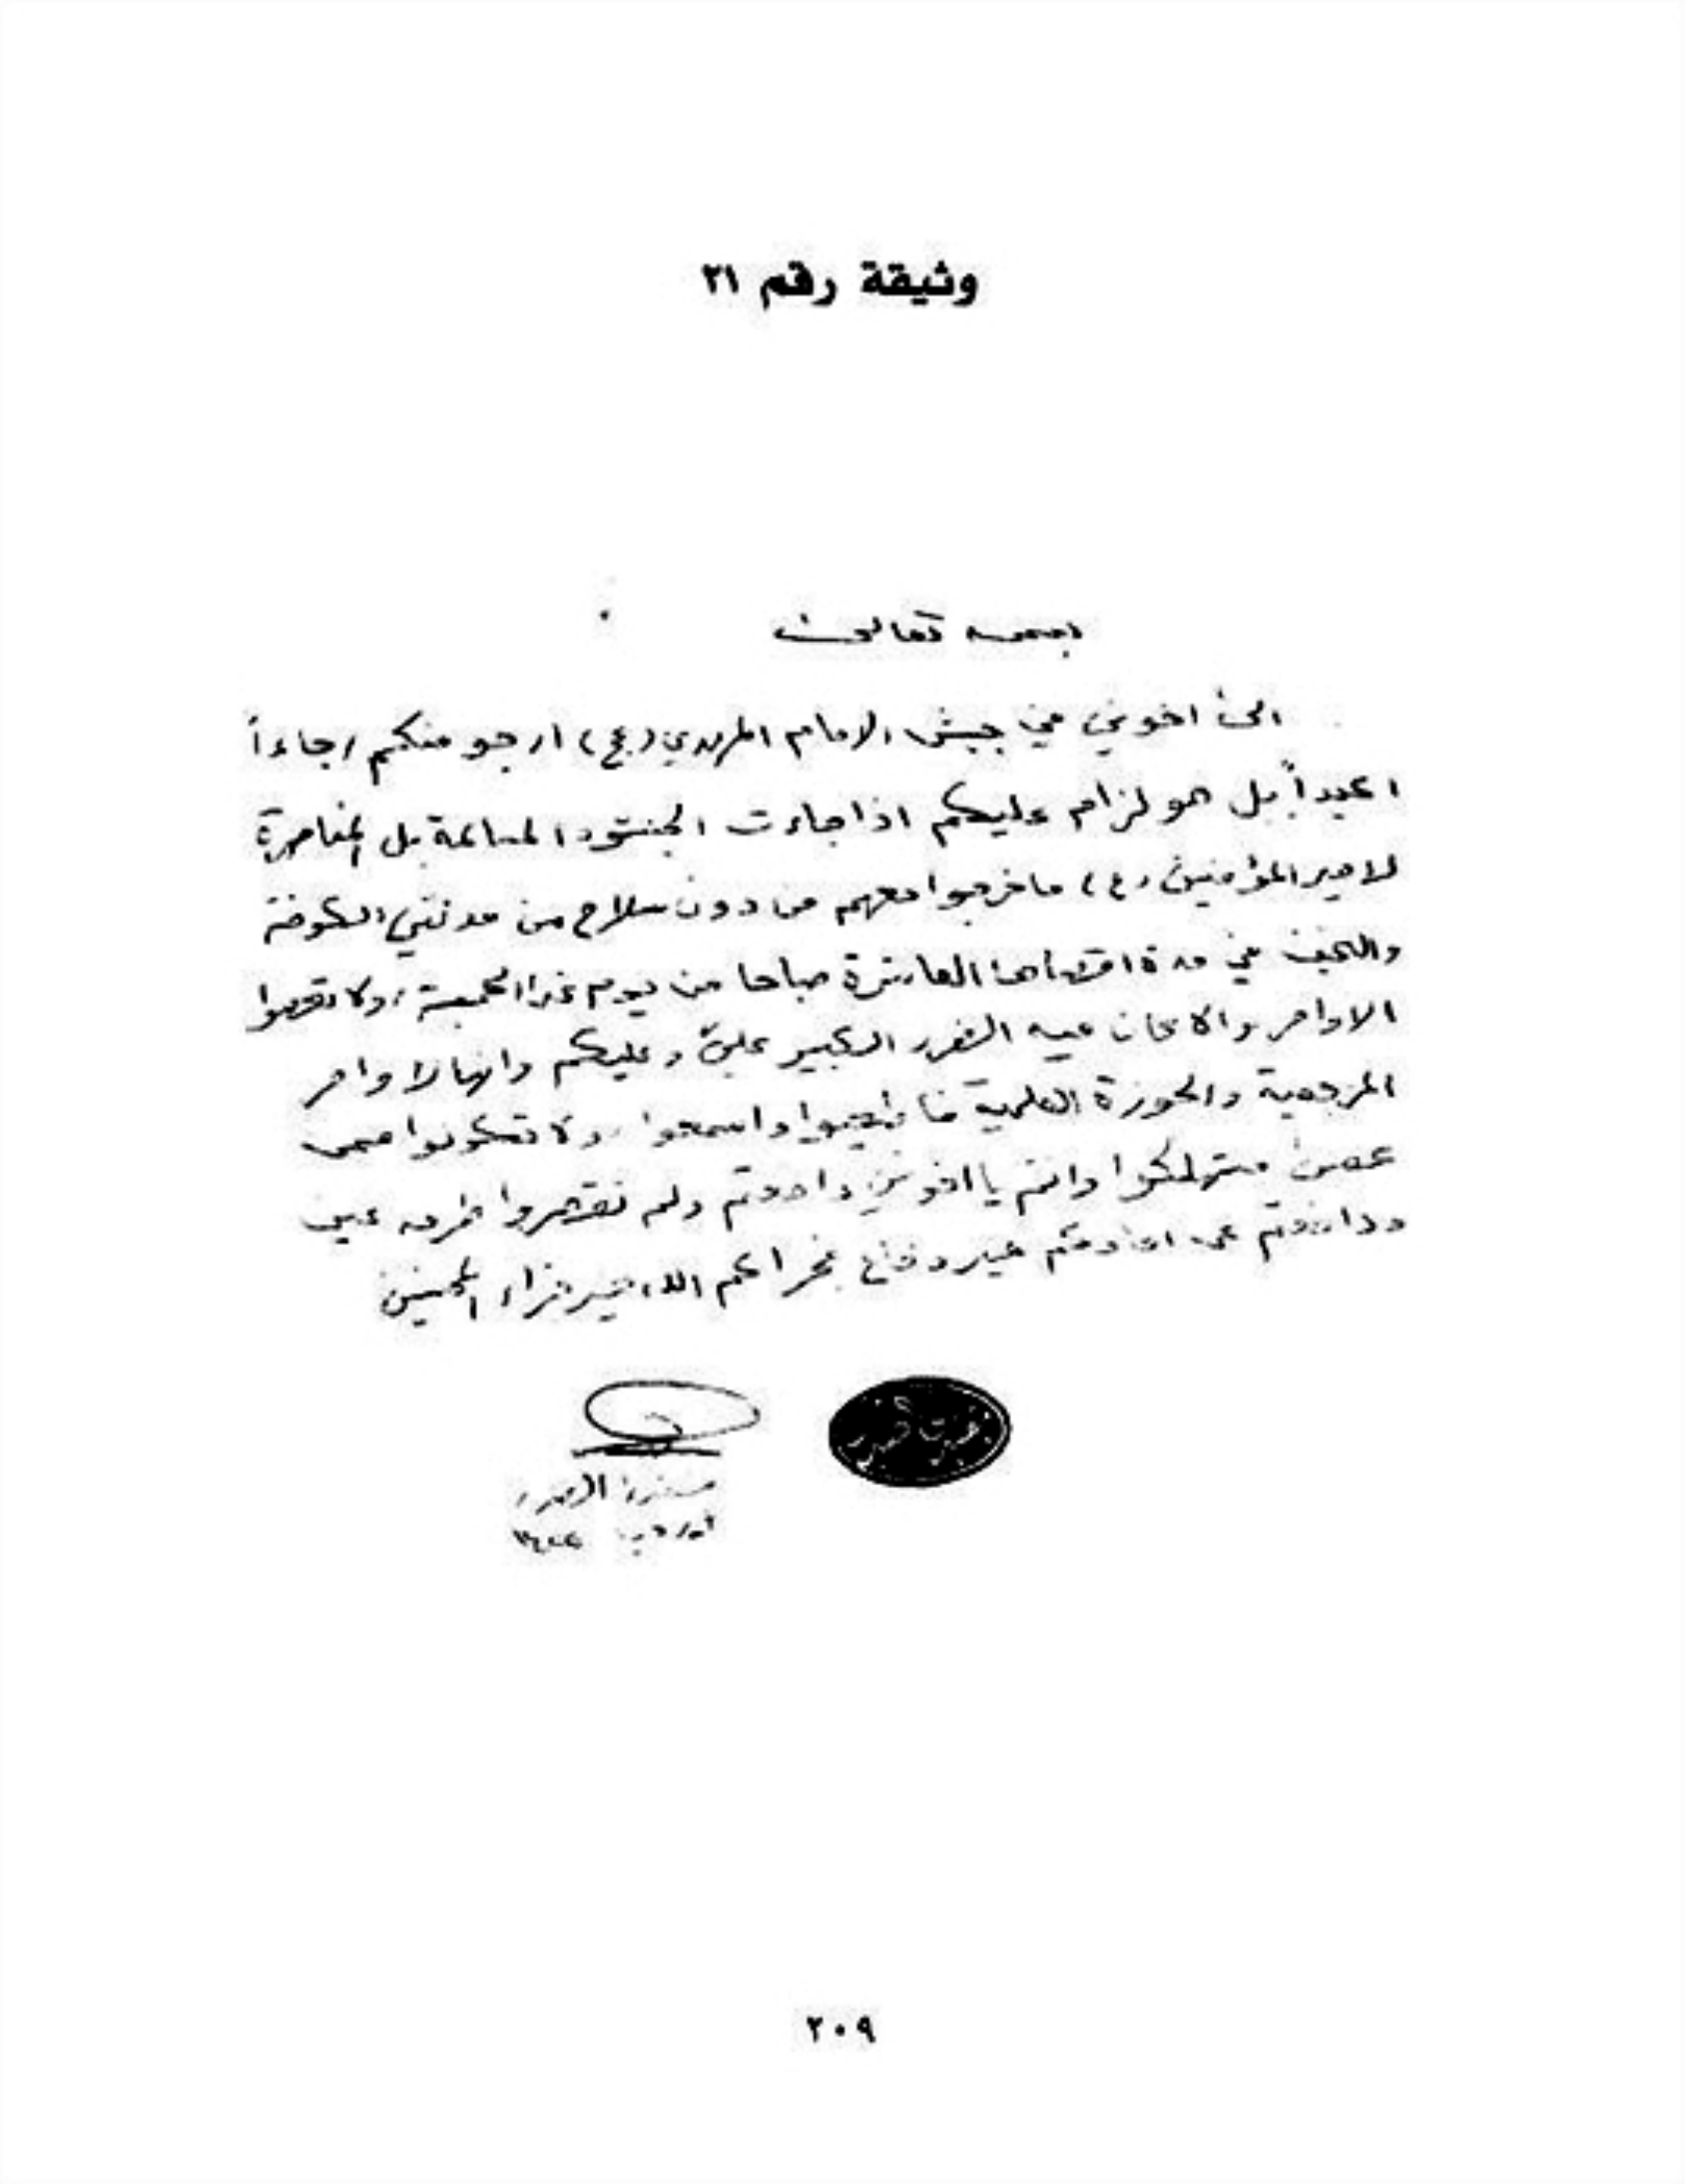 وثيقة رقم ٢١
بسمه تعالى
الى اخوتي في جيش الامام المهدي (عج) ارجو منكم رجاءاً
اكيداً بل هو لزام عليكم اذا جاءت الحشود المسالمة بل المناصرة
لامير المؤمنين (ع) فاخرجوا معهم من دون سلاح من مدينتي الكوفة
والنجف في مدة اقصاها العاشرة صباحا من يوم غد الجمعة، ولا تعصوا
الاوامر والا كان فيه الضرر الكبير عليّ وعليكم وانها لاوامر
المرجعية والحوزة العلمية فاطيعوا واسمعوا ولا تكونوا ممن
عصى فتهلكوا وانتم يا اخوتي واحدتم ولم تقصروا طرفة عين
ودافعتم عن خير دفاع فجزاكم الله خير جزاء المحسنين
مقتدى الصدر
٢٠٩